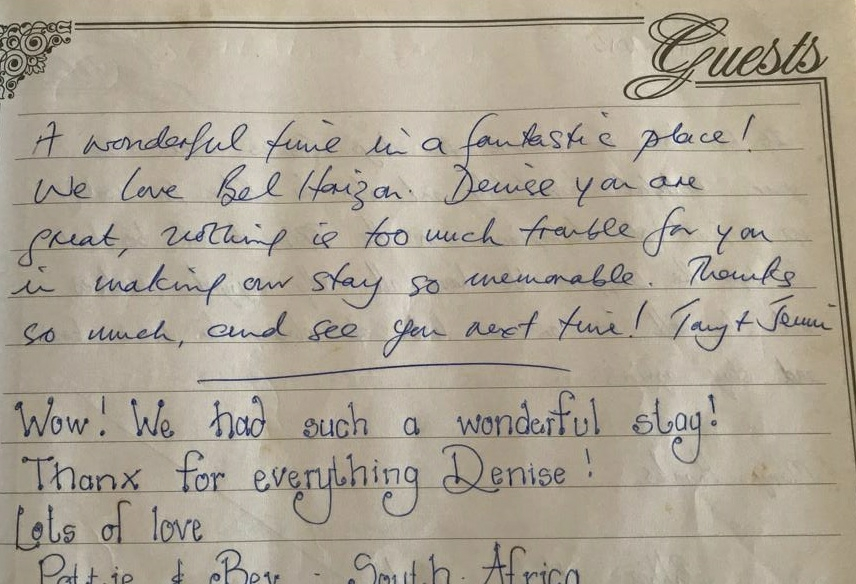 Guests
A wonderful time in a fantastic place!
We love Bel Horizon. Denise you are
great, nothing is too much trouble for you
in making our stay so memorable. Thanks
so much, and see you next time! Tony + Jenni
Wow! We had such a wonderful stay!
Thanx for everything Denise!
Lots of love
& Bev - South Africa